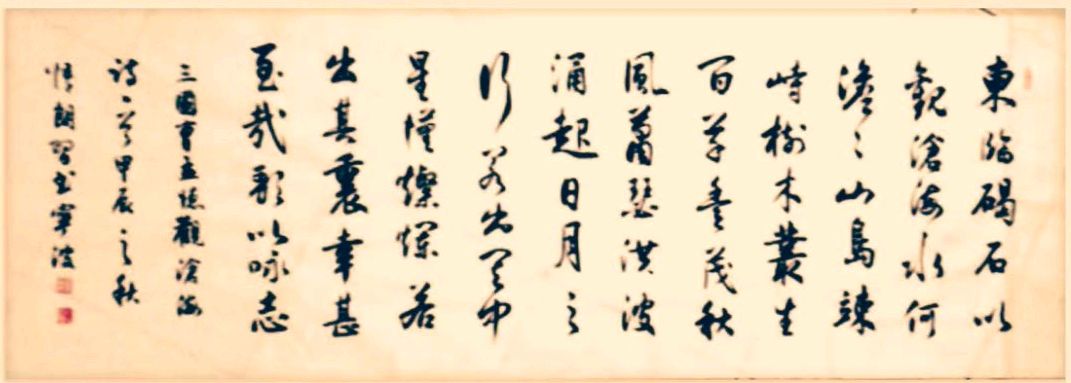 東臨碣石以
觀滄海水何
澹々山島竦
峙樹木叢生
百草豐茂秋
風蕭瑟洪波
涌起日月之
行若出其中
星漢燦爛若
出其裏幸甚
至哉歌以咏志
三國曹孟德觀滄海
诗一首甲辰之秋
悟朗習书寧波